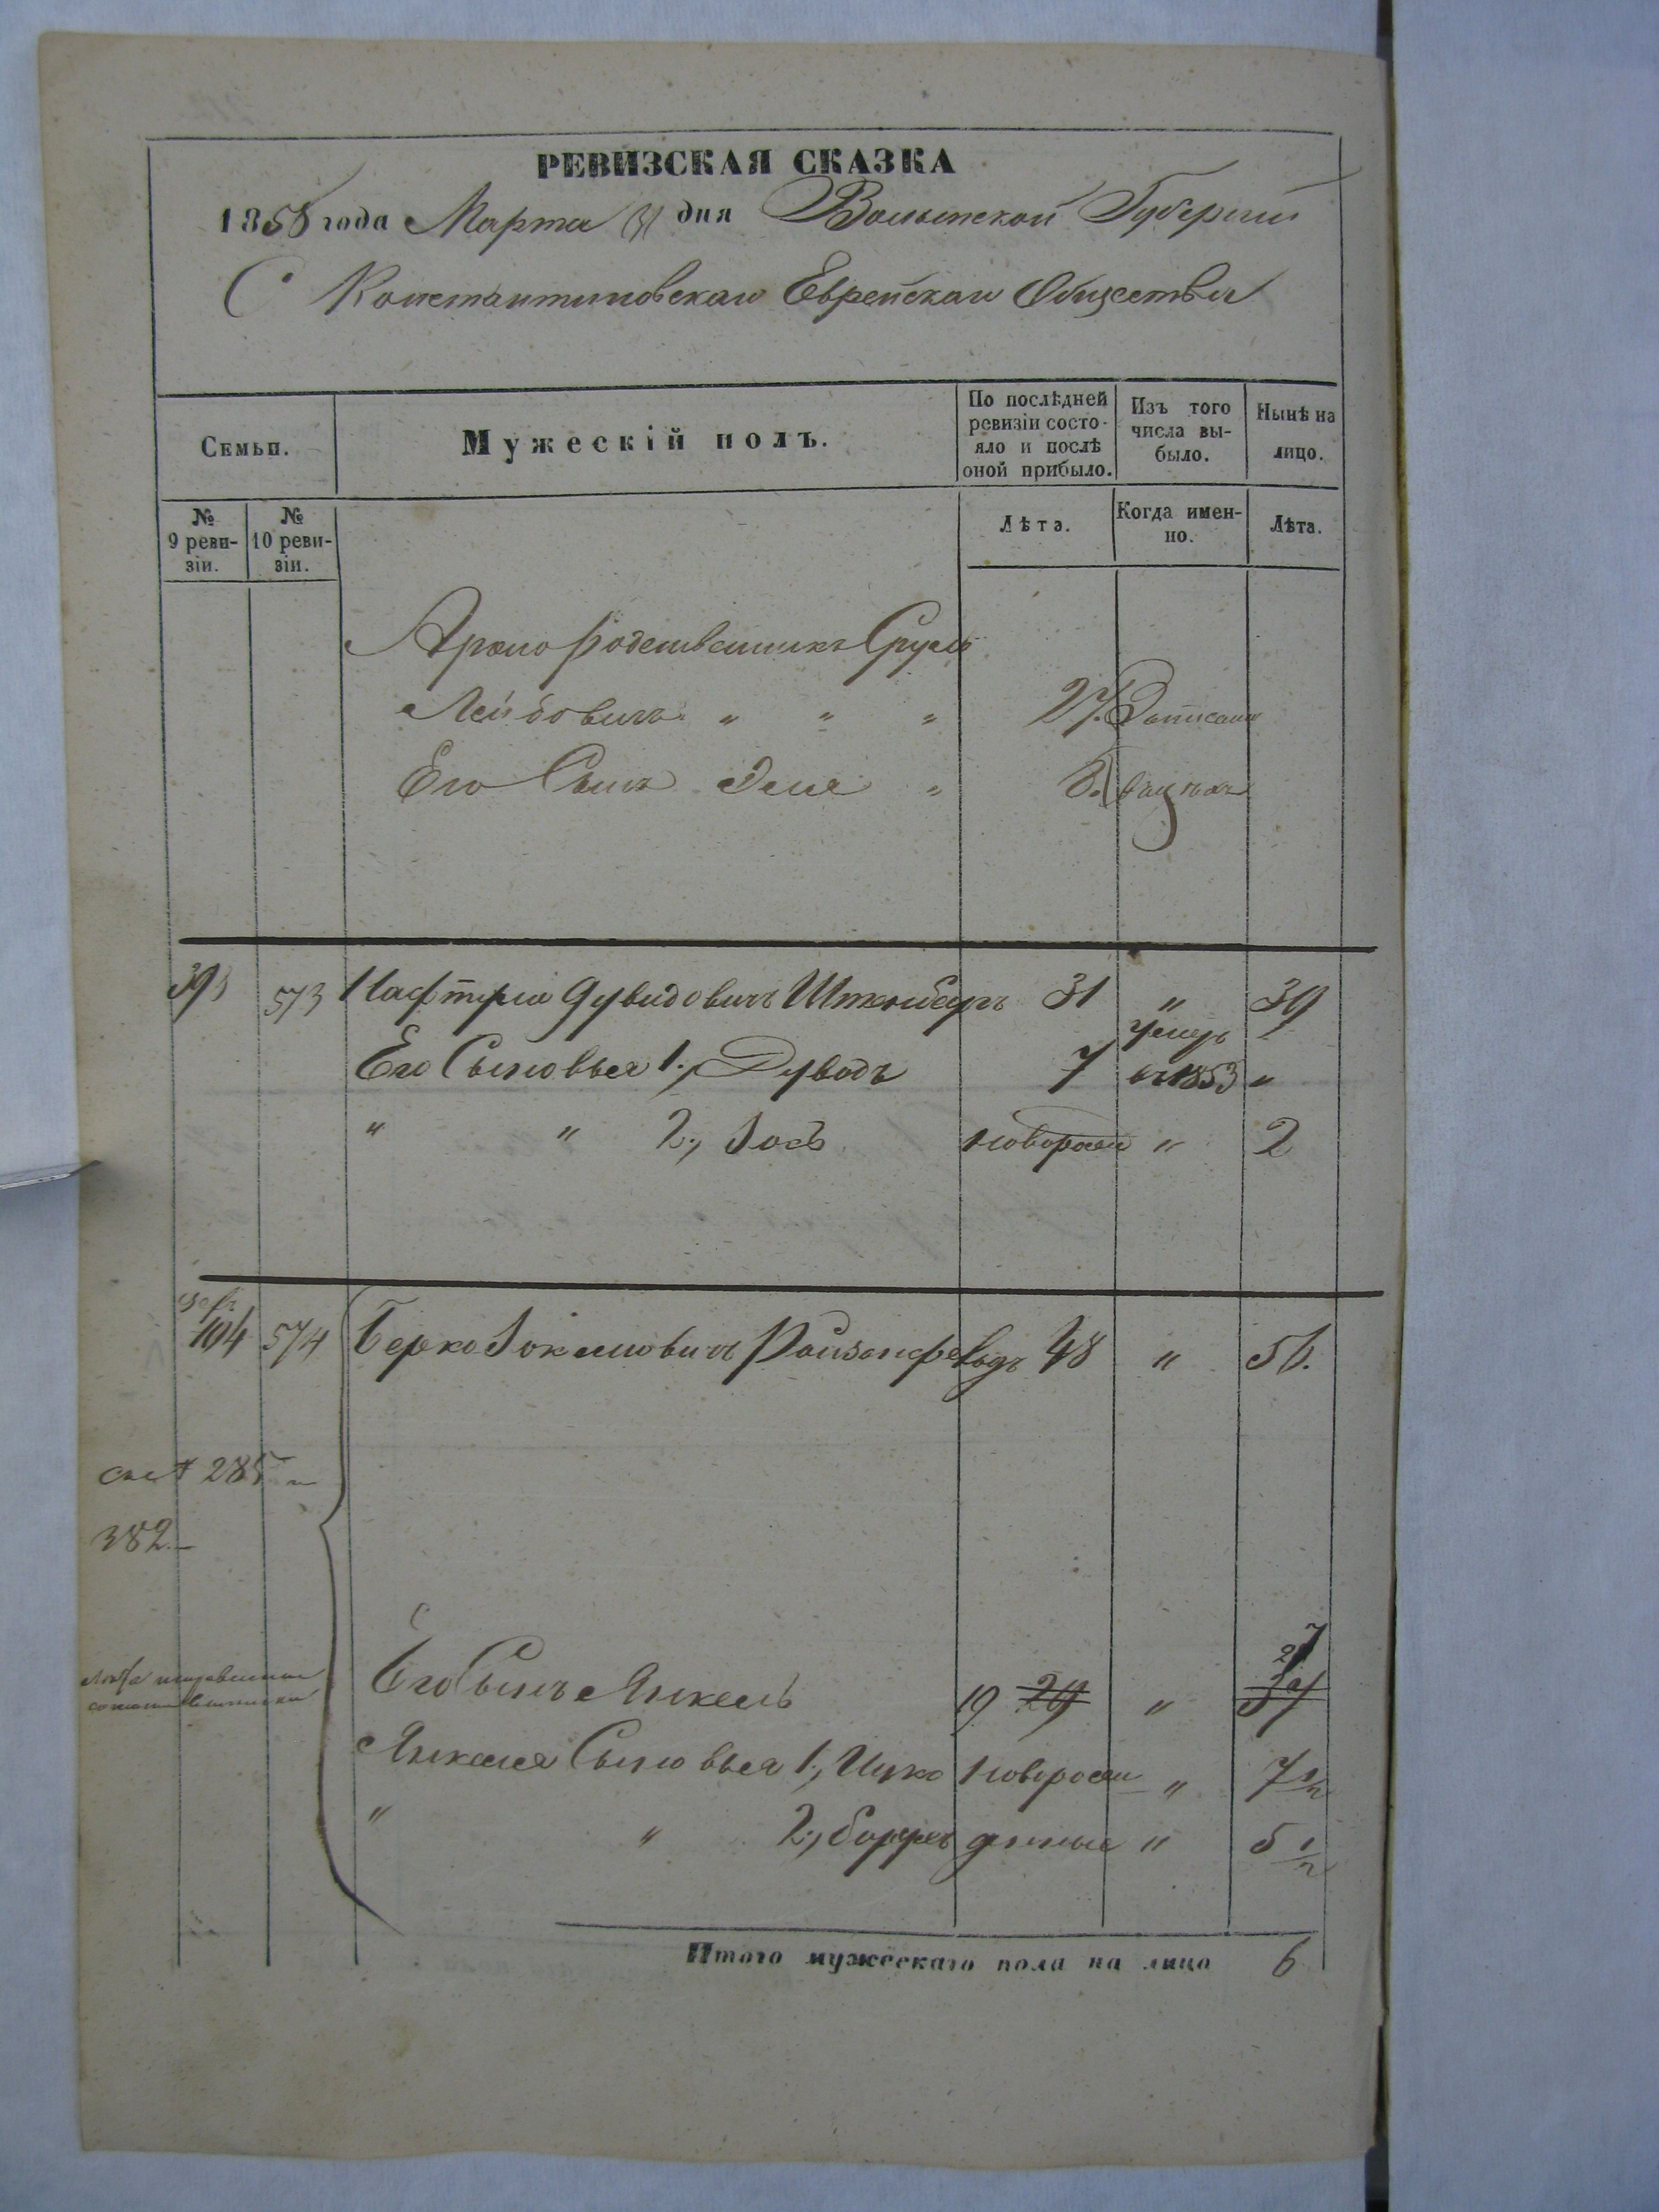 РЕВИЗСКАЯ СКАЗКА
1858 года Марта 31 дня Волынской Губернии
С Константиновскаго Еврейскаго Общества
Семьи.
Мужескій полъ.
По послѣдней ревизіи состо-
яло и послѣ
оной прибыло.
Изъ того
числа вы-
было.
Нынѣ на
лицо.
№
9 реви-
зіи.
№
10 реви-
зіи.
Лѣта.
Когда имен-
но.
Лѣта.
родственникъ Сруль
Лейбовичъ " " " 27.
Его Сынъ "
393 573 Дувидовичъ Штейнбергъ 31 " 39
Его Сыновья 1., Дуводъ 7 умеръ въ 1853 "
" " 2., Іосъ новорожд " 2
104 574 Берко Іокелиовичъ Ройзенфельдъ 48 " 56.
285
382.
Его Сынъ Янкель 19 29 " 27 37
Янкеля Сыновья 1., Ицко новорож " 7 1/2
" " 2., денные " 5 1/2
Итого мужескаго пола на лицо 6